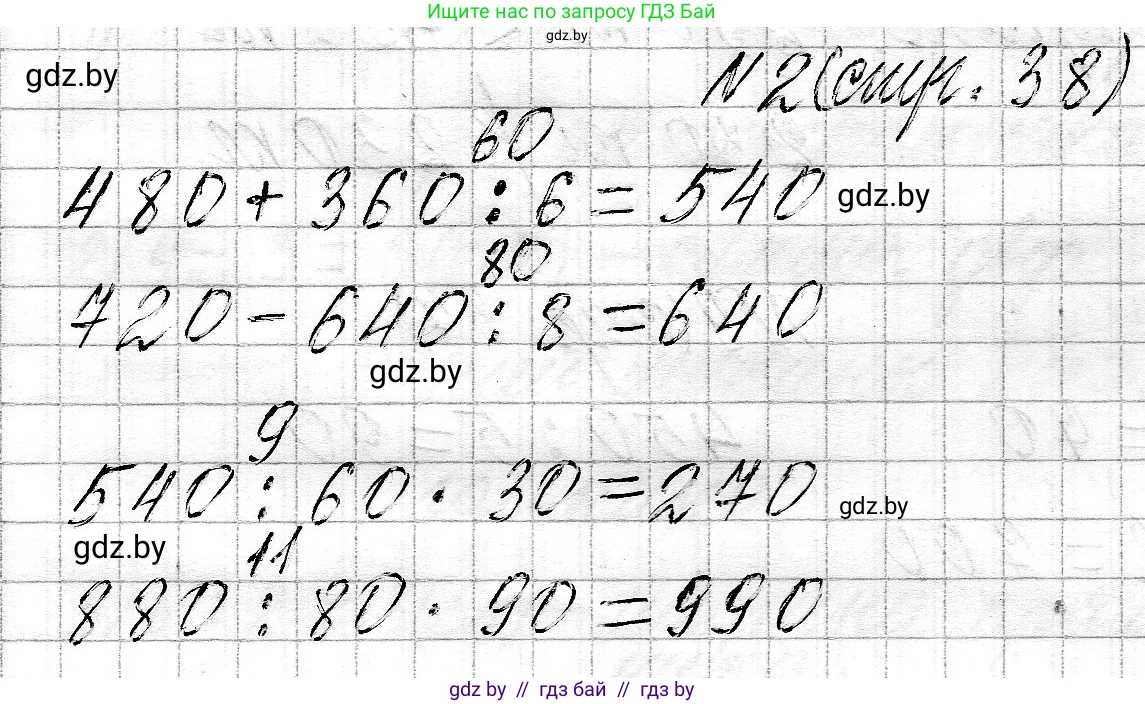 Ищите нас по запросу ГДЗ Бай
gdz.by
gdz.by
N2 (стр. 38)
60
480 + 360 : 6 = 540
gdz.by
80
720 - 640 : 8 = 640
gdz.by
9
540 : 60 · 30 = 270
gdz.by
gdz.by
11
880 : 80 · 90 = 990
gdz by // гдз бай // гдз by